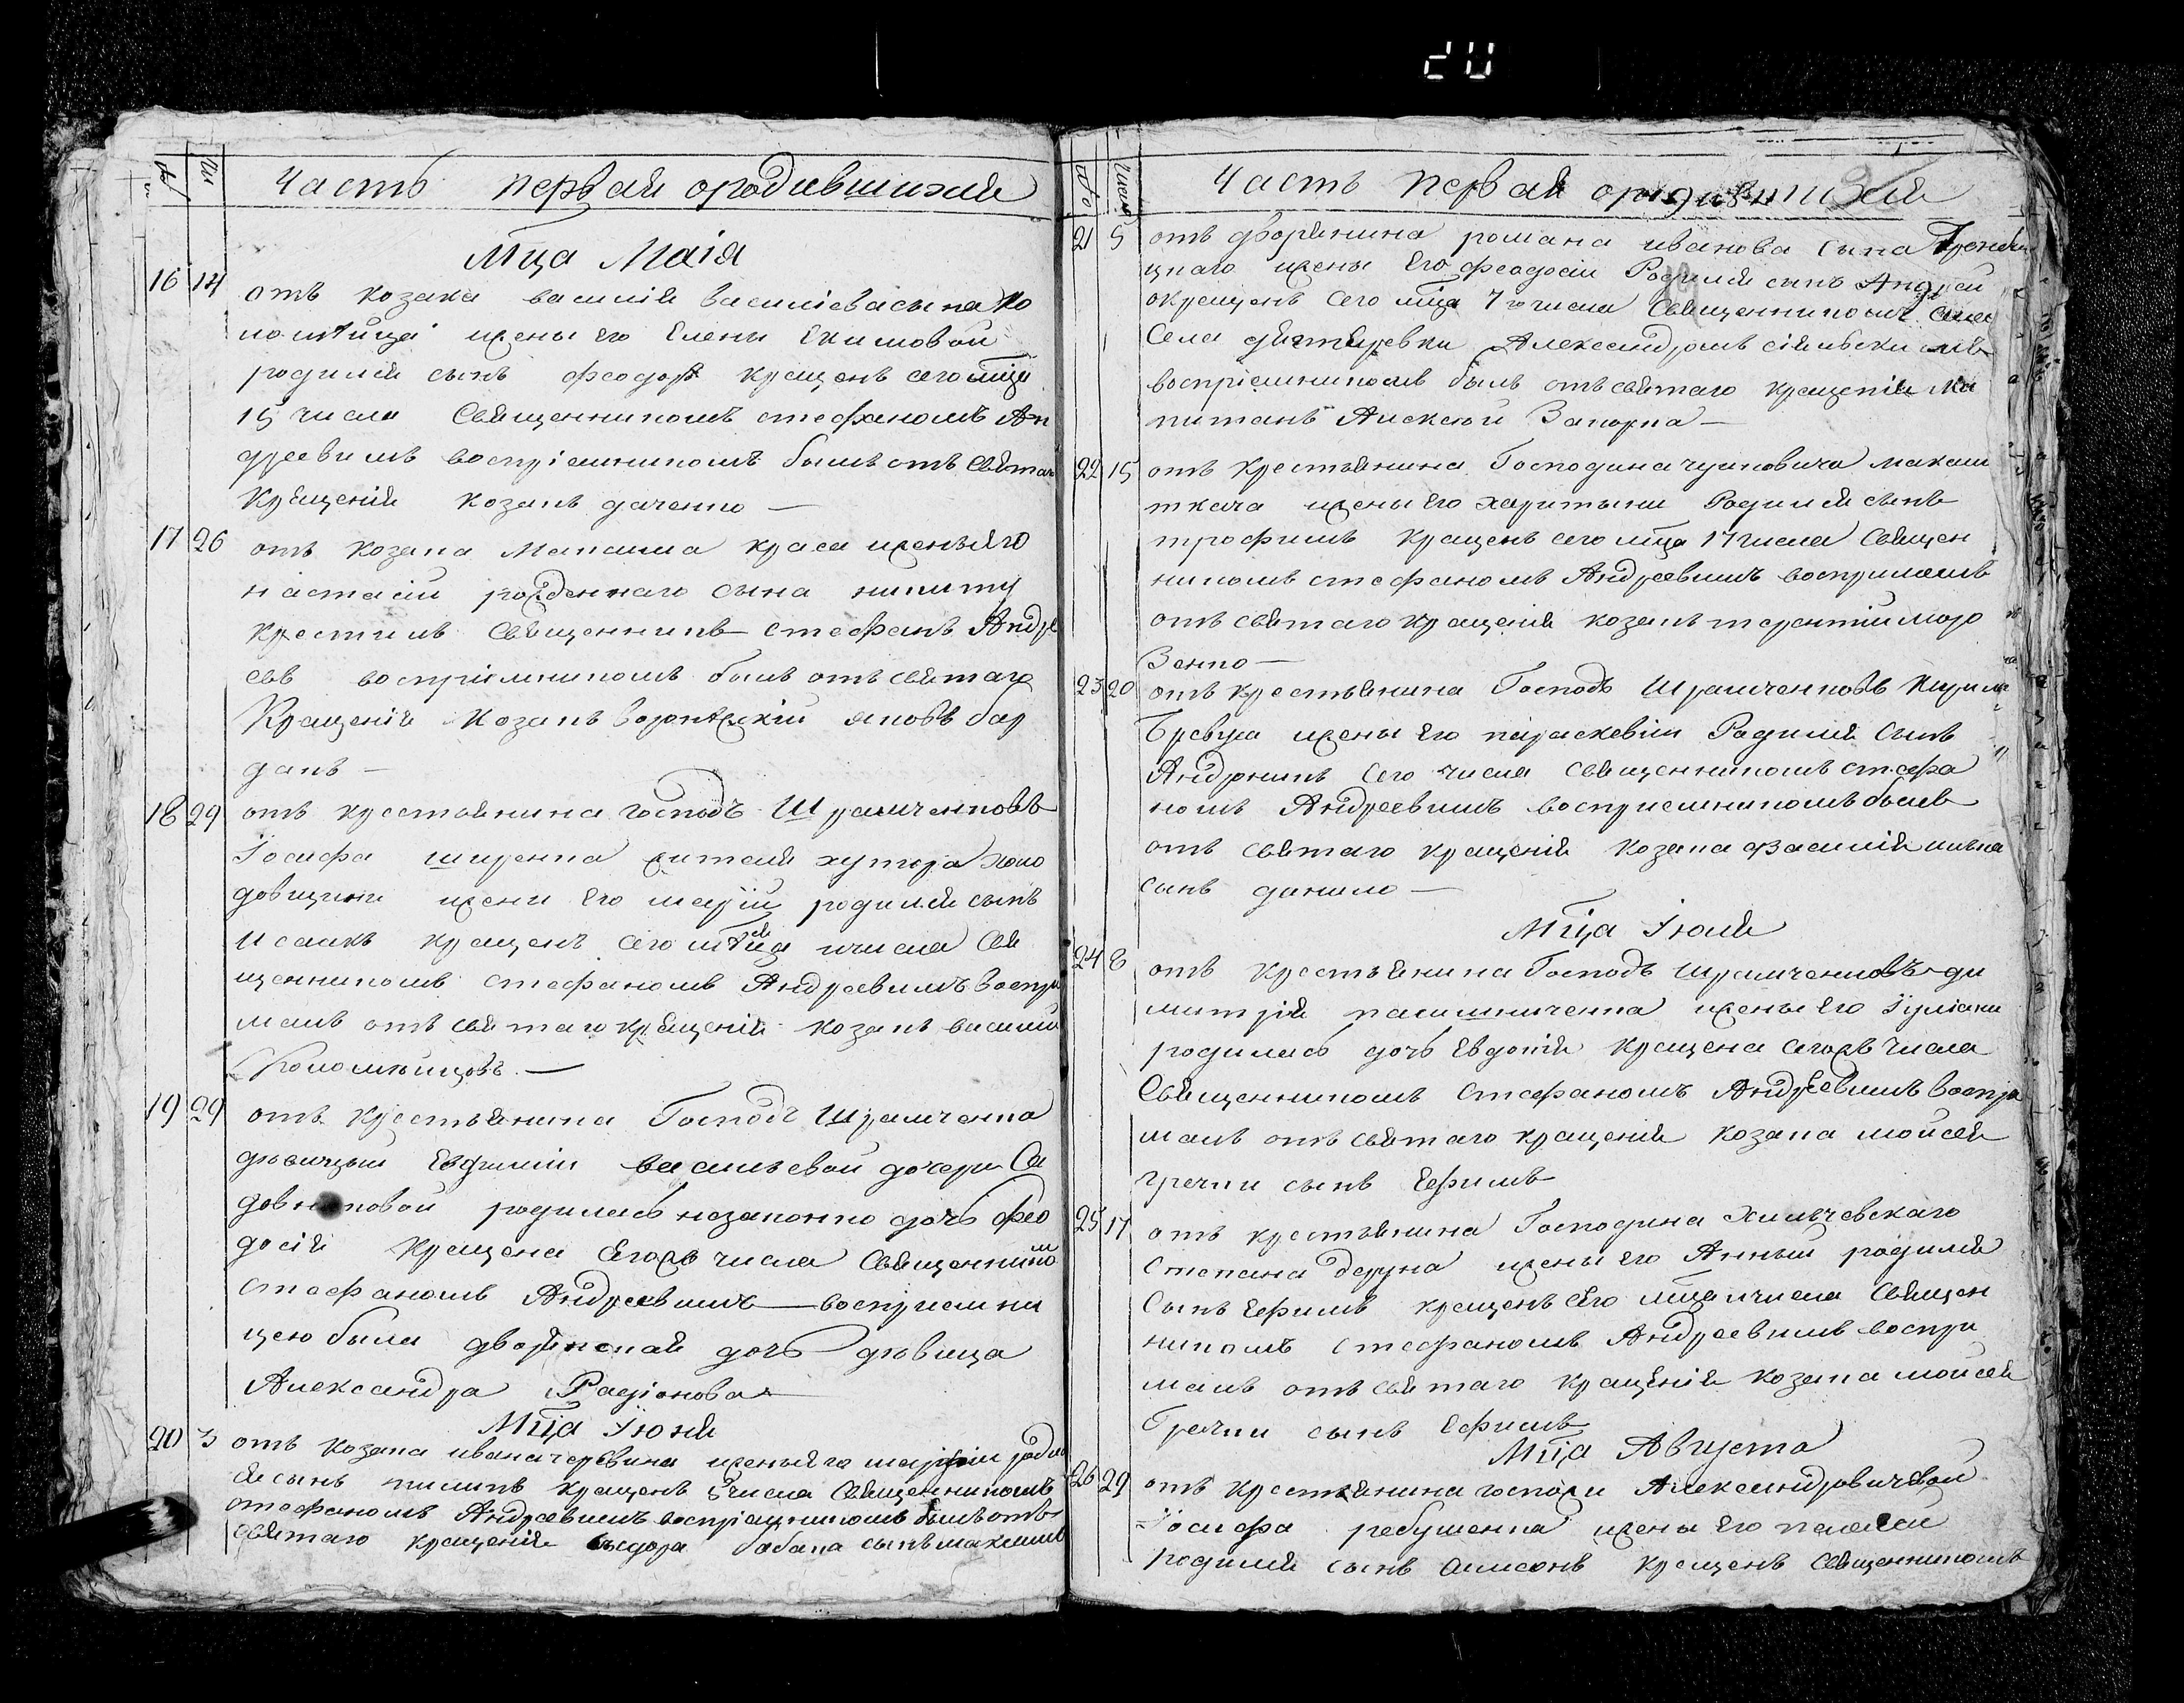 20
часть первая ородившихся
Мца Маія
16 14 отъ козака василія василіева сына Ко
ломійца жены его Елены Екимовой
родился сынъ феодоръ крещенъ сего мца
15 числа Священникомъ стефаномъ Ан
дреевимъ воспріемникомъ былъ отъ Святаго
Крещенія козакъ даченко —
17 26 отъ козака Максима краса жены его
настасіи рожденнаго сына никиту
крестилъ Священникъ стефанъ Андре
евъ воспріемникомъ былъ отъ святаго
Крещенія козакъ яковъ бар
данъ —
18 29 отъ крестьянина господъ Шрамченковъ
Іосифа ширенка жителя хутора холо
довщини жени его маріи родился сынъ
Исаакъ крещенъ сего мца числа Свя
щенникомъ стефаномъ Андреевимъ воспри
малъ отъ святаго крещенія козакъ василій
19 29 отъ крестьянина Господъ Шрамченка
дѣвицы Евфиміи васильевой дочери Са
довниковой родилась незаконно дочь фео
досія крещена Егожъ числа Священником
стефаномъ Андреевимъ — воспріемни
цею была дворянская дочь дѣвица
Александра Радіонова —
Мца Іюня
20 3 отъ козака ивана червина жены его маріи родил
ся сынъ крещенъ 5 числа Священникомъ
стефаномъ Андреевимъ воспріемникомъ былъ отъ
святаго крещенія сидора бабака сынъ максимъ
Число
Часть первая ородившихся
21 5 отъ дворянина романа иванова сына
цкаго жены его феодосіи Родился сынъ Андрей
окрещенъ сего мца 7 го числа Священникомъ
Села Александромъ
воспріемникомъ былъ отъ святаго крещенія Ка
питанъ Алексей Запорка —
22 15 отъ крестьянина Господина чуйковича максим
ткача жены его харитыни Родился сынъ
трофимъ крещенъ сего мца 17 числа Священ
никомъ стефаномъ Андреевимъ восприималъ
отъ святаго крещенія козакъ терентій моро
зенко —
23 20 отъ крестьянина Господъ Шрамченковъ Кирила
Бревуса жены его параскевіи Родился сынъ
Андроникъ сего числа священникомъ стефа
номъ Андреевимъ воспріемникомъ былъ
отъ святаго крещенія козака василія
сынъ данило —
Мца Іюля
24 8 отъ крестьянина Господъ Шрамченковъ ди
митрія жены его Іуліани
родилась дочь Евдокія крещена тогожъ числа
Священникомъ Стефаномъ Андреевимъ воспри
малъ отъ святаго крещенія козака мойсея
гречки сынъ Ефимъ
25 17 отъ крестьянина Господина Хильчевскаго
Степана деруна жены его Анны родился
Сынъ Ефимъ крещенъ сего мца числа Священ
никомъ Стефаномъ Андреевимъ воспри
малъ отъ святаго крещенія козака мойсея
Гречки сынъ Ефимъ
Мца Августа
26 29 отъ крестьянина госпожи Александровичевой
Іосифа ребушенка жены его пелагеи
родился сынъ Самсонъ крещенъ Священникомъ